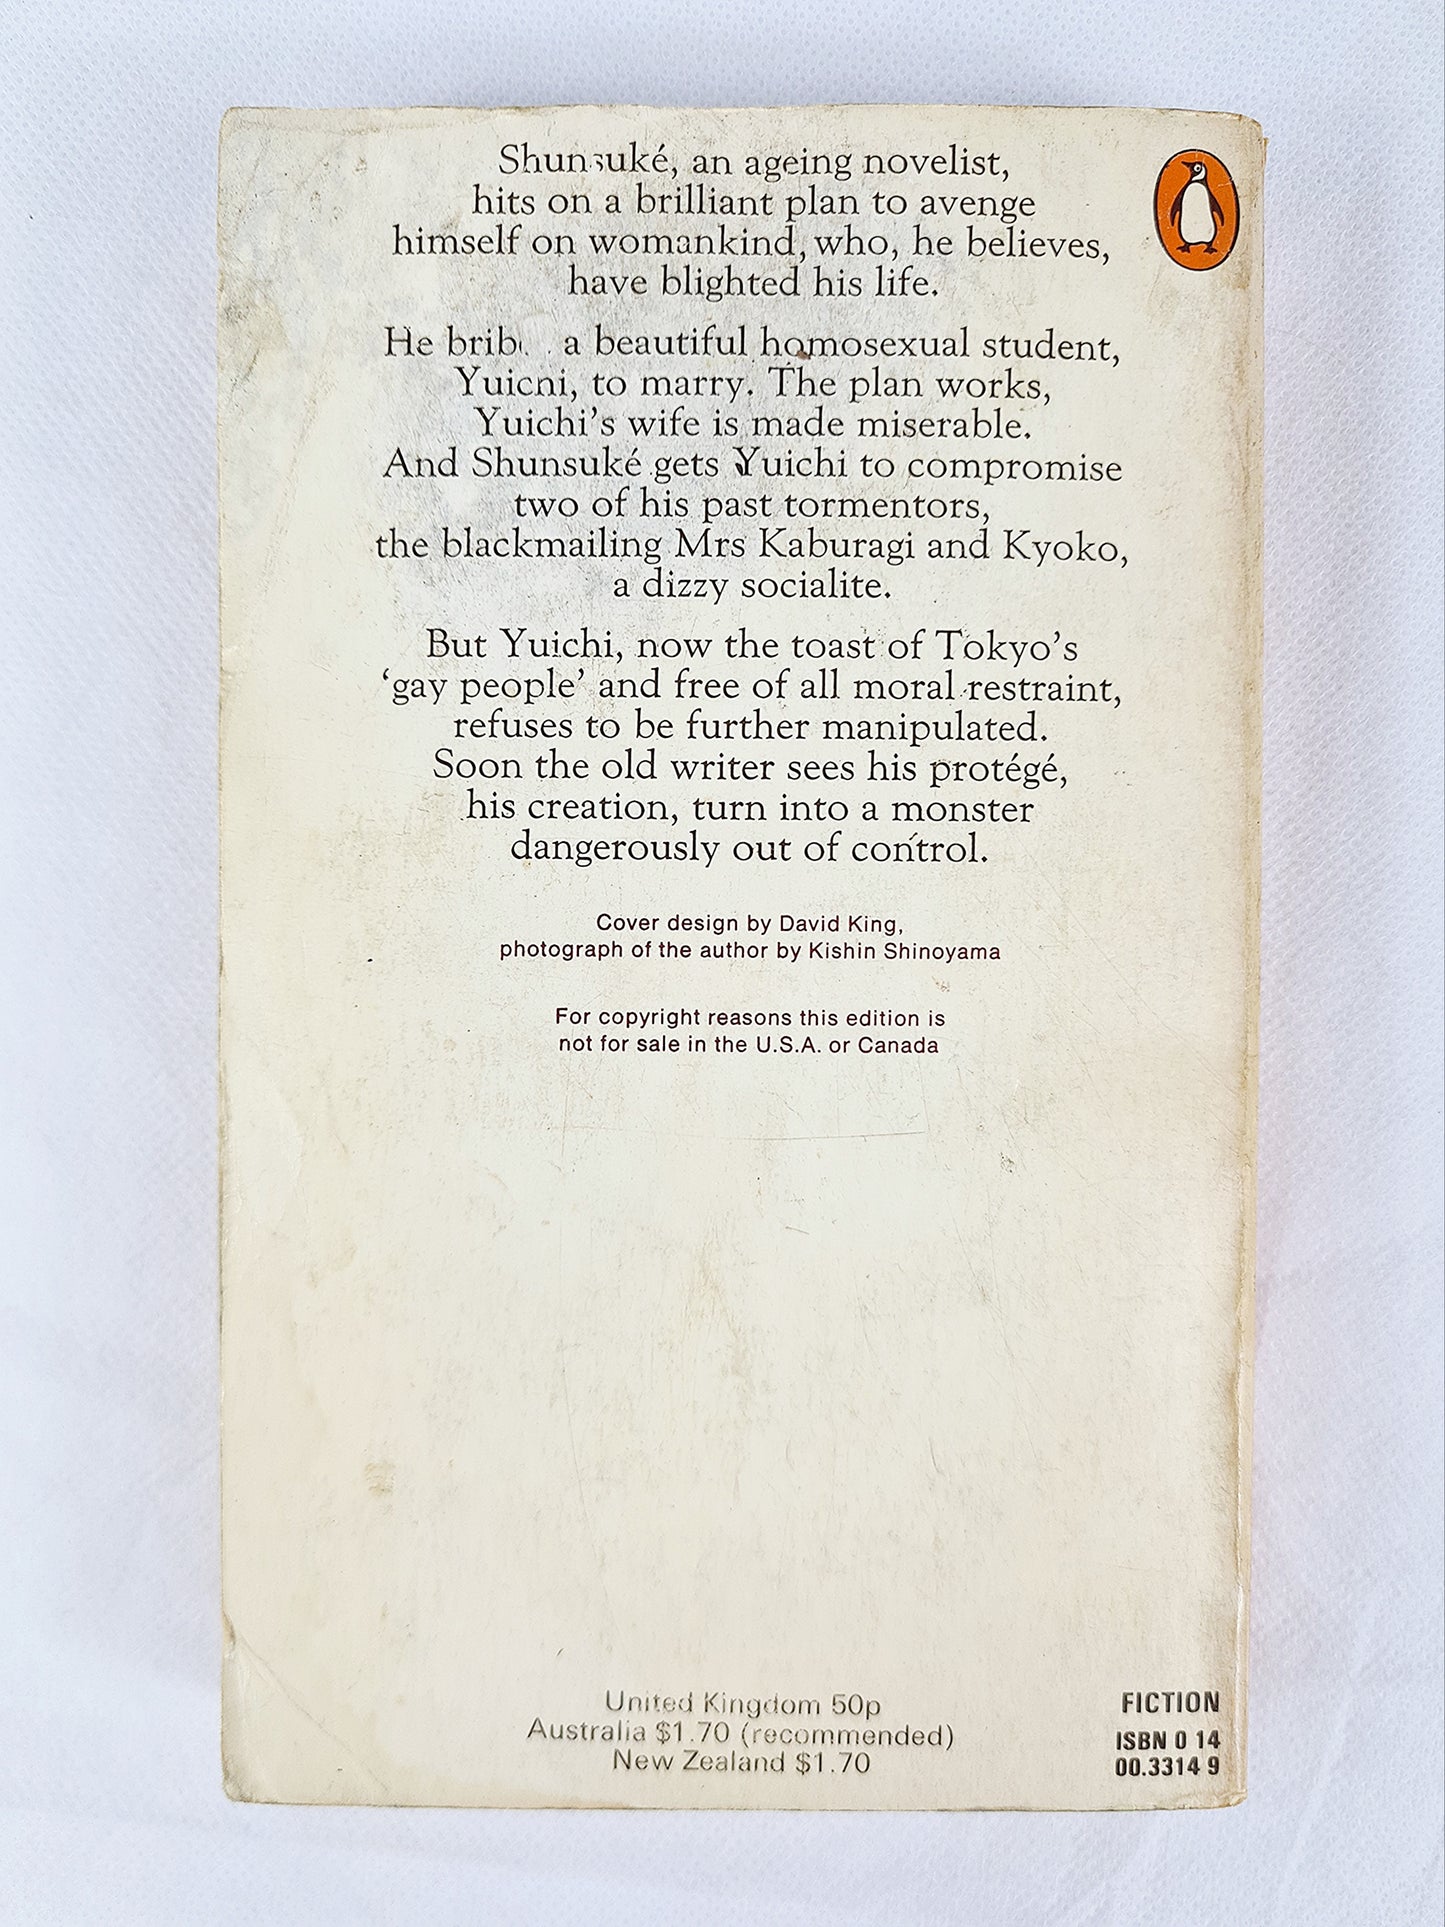 Shunsuké, an ageing novelist,
hits on a brilliant plan to avenge
himself on womankind, who, he believes,
have blighted his life.
He a beautiful homosexual student,
Yuichi, to marry. The plan works,
Yuichi's wife is made miserable.
And Shunsuké gets Yuichi to compromise
two of his past tormentors,
the blackmailing Mrs Kaburagi and Kyoko,
a dizzy socialite.
But Yuichi, now the toast of Tokyo's
‘gay people’ and free of all moral restraint,
refuses to be further manipulated.
Soon the old writer sees his protégé,
his creation, turn into a monster
dangerously out of control.
Cover design by David King,
photograph of the author by Kishin Shinoyama
For copyright reasons this edition is
not for sale in the U.S.A. or Canada
United Kingdom 50p
Australia $1.70 (recommended)
New Zealand $1.70
FICTION
ISBN 0 14
00.3314 9